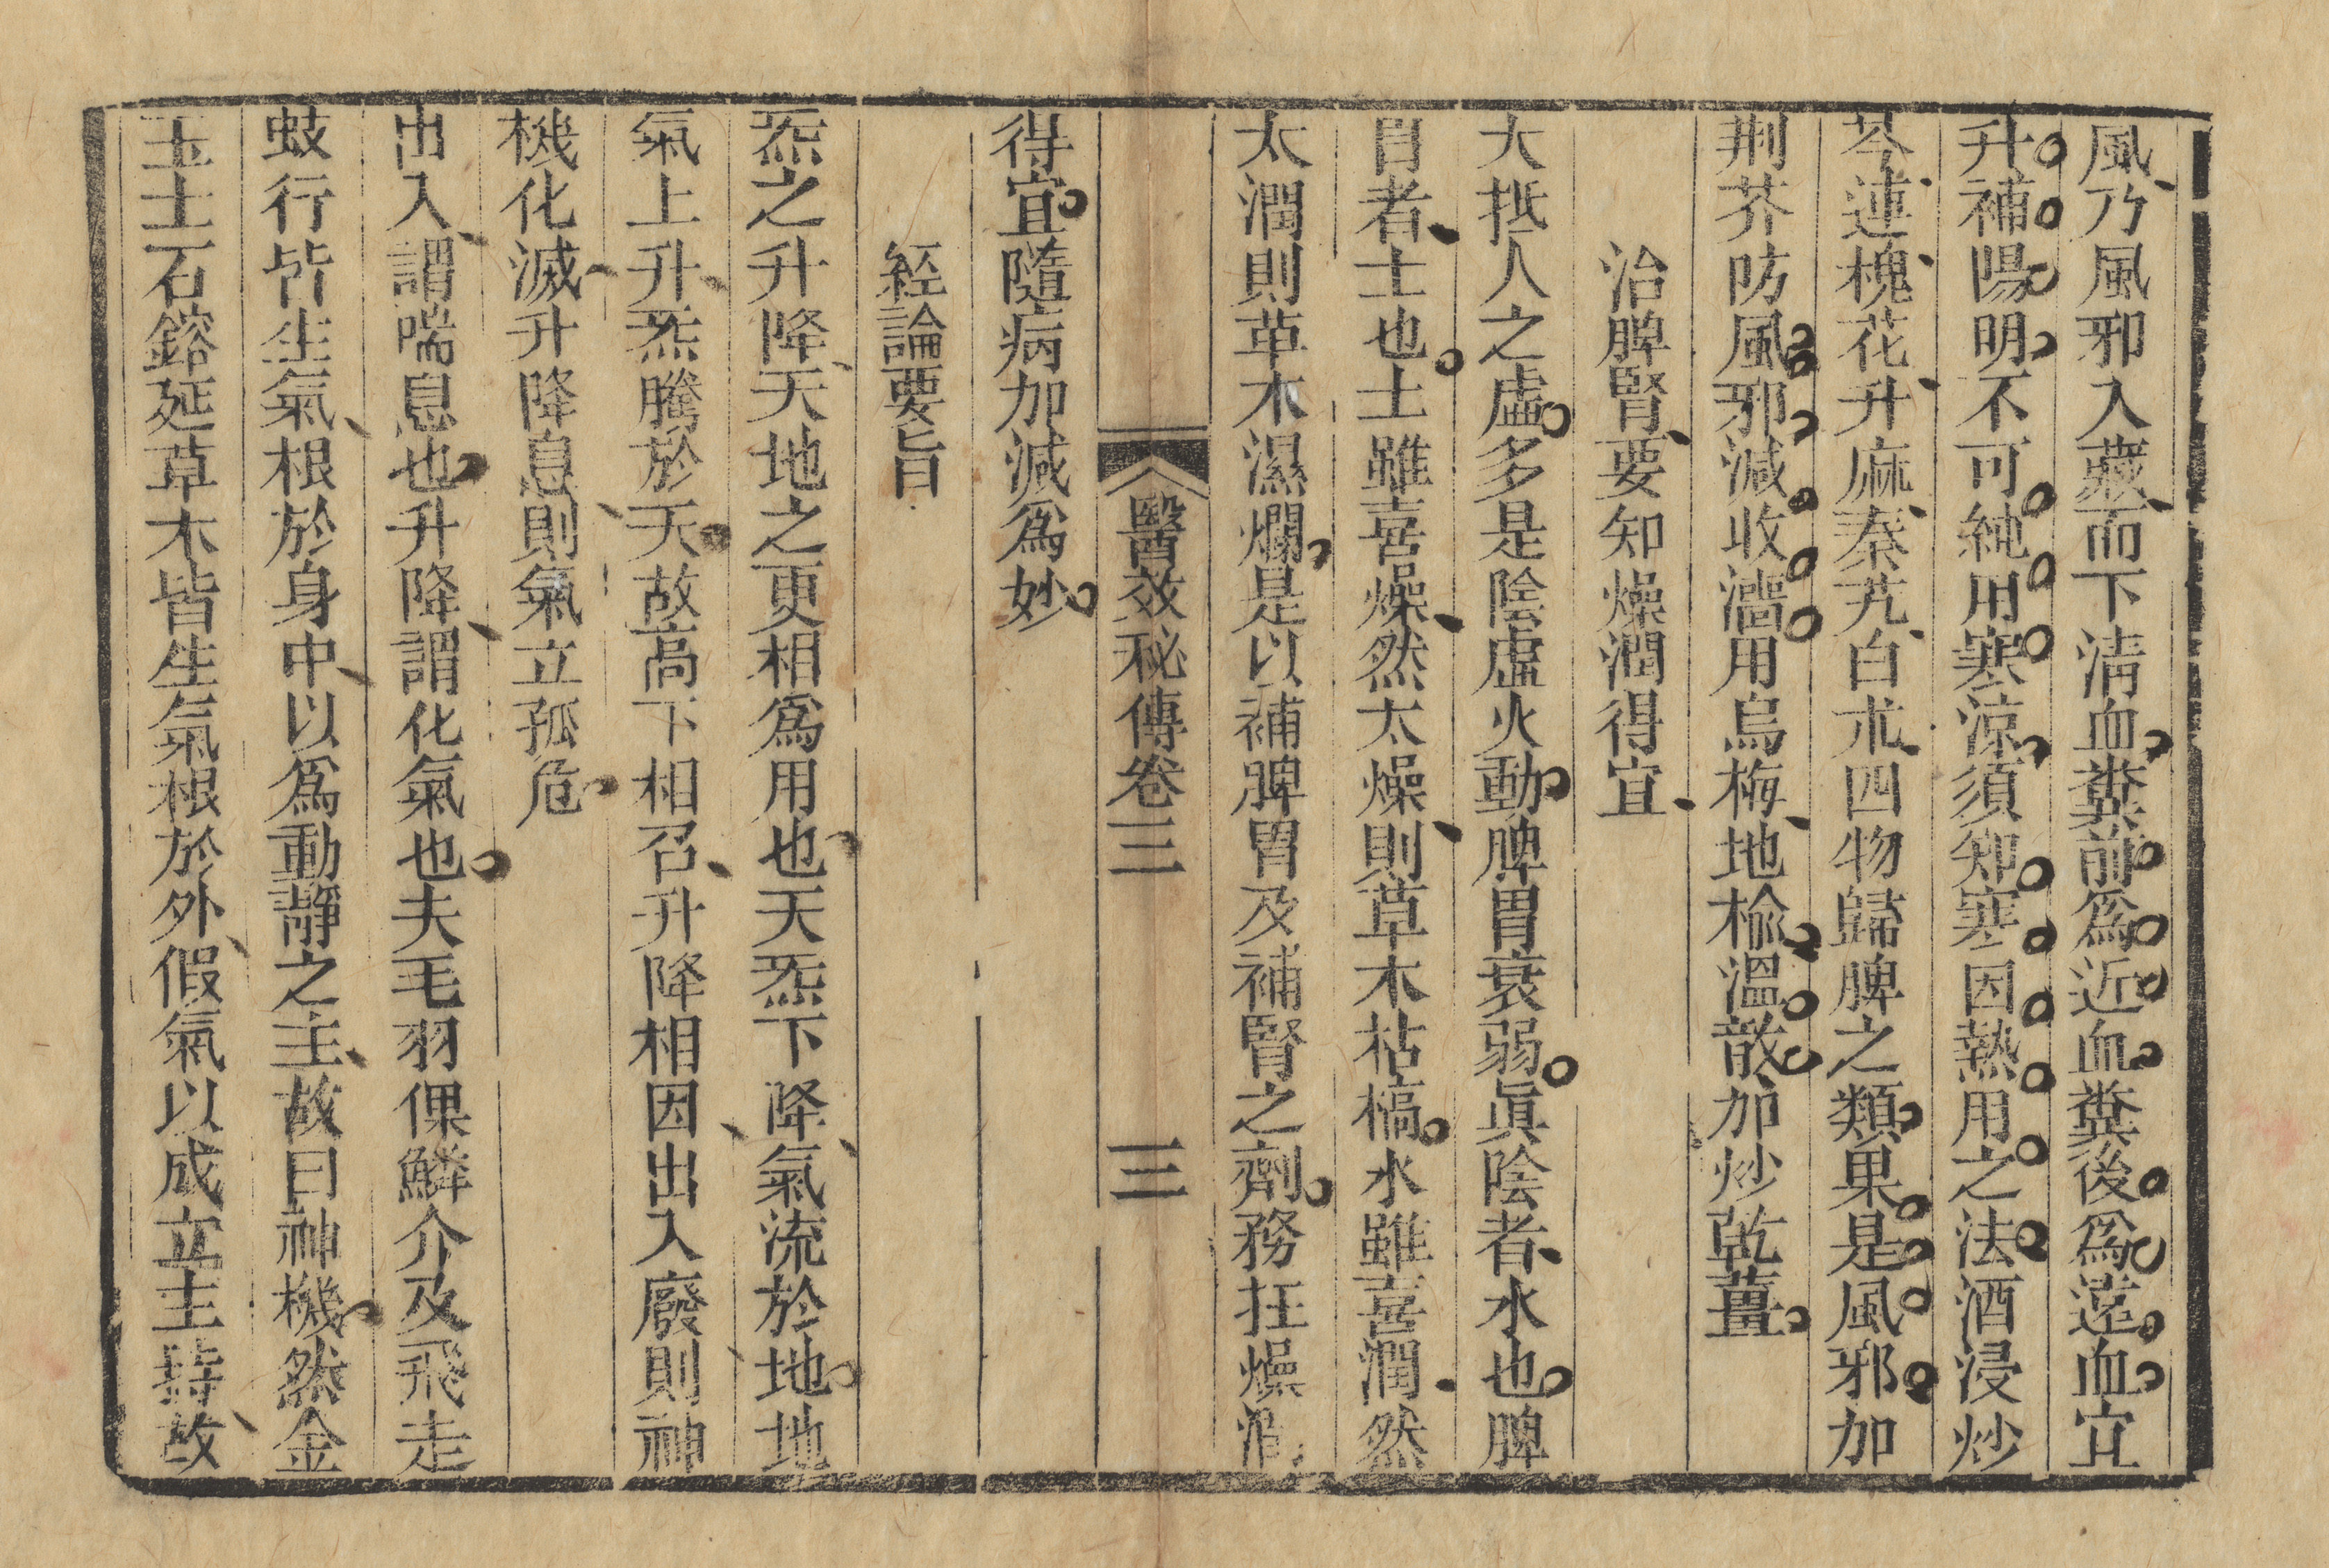 風乃風邪入藏而下清血糞前爲近血糞後爲遠血宜
升補陽明不可純用寒涼須知寒因熱用之法酒浸炒
芩連槐花升麻秦艽白朮四物歸脾之類果是風邪加
荆芥防風邪減收濇用烏梅地榆溫散加炒乾薑
治脾腎要知燥潤得宜
大抵人之虛多是陰虛火動脾胃衰弱眞陰者水也脾
胃者土也土雖喜燥然太燥則草木枯槁水雖喜潤然
太潤則草木濕爛是以補脾胃及補腎之劑務在燥潤
醫效秘傳卷三
三
得宜隨病加減爲妙
經論要旨
炁之升降天地之更相爲用也天炁下降氣流於地地
氣上升炁騰於天故高下相召升降相因出入廢則神
機化滅升降息則氣立孤危
出入謂喘息也升降謂化氣也夫毛羽倮鱗介及飛走
蚑行皆生氣根於身中以爲動靜之主故曰神機然金
玉土石鎔延草木皆生氣根於外假氣以成立主持故